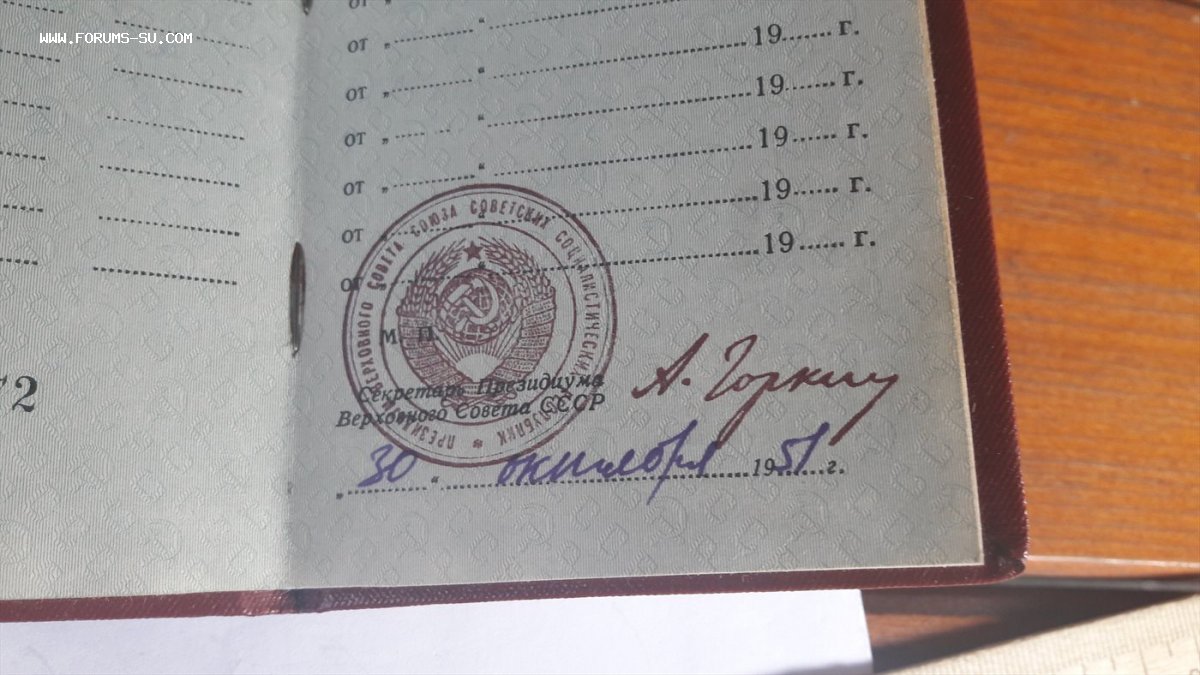 WWW.FORUMS-SU.COM
от „
от „ “ 19 г.
от „ “ 19 г.
от „ “ 19 г.
от „ “ 19 г.
от „ “ 19 г.
от „ “ 19 г.
ПРЕЗИДИУМ ВЕРХОВНОГО СОВЕТА СОЮЗА СОВЕТСКИХ СОЦИАЛИСТИЧЕСКИХ РЕСПУБЛИК
М. П.
Секретарь Президиума
Верховного Совета СССР
А. Горкин
„ 30 “ октября 1951 г.